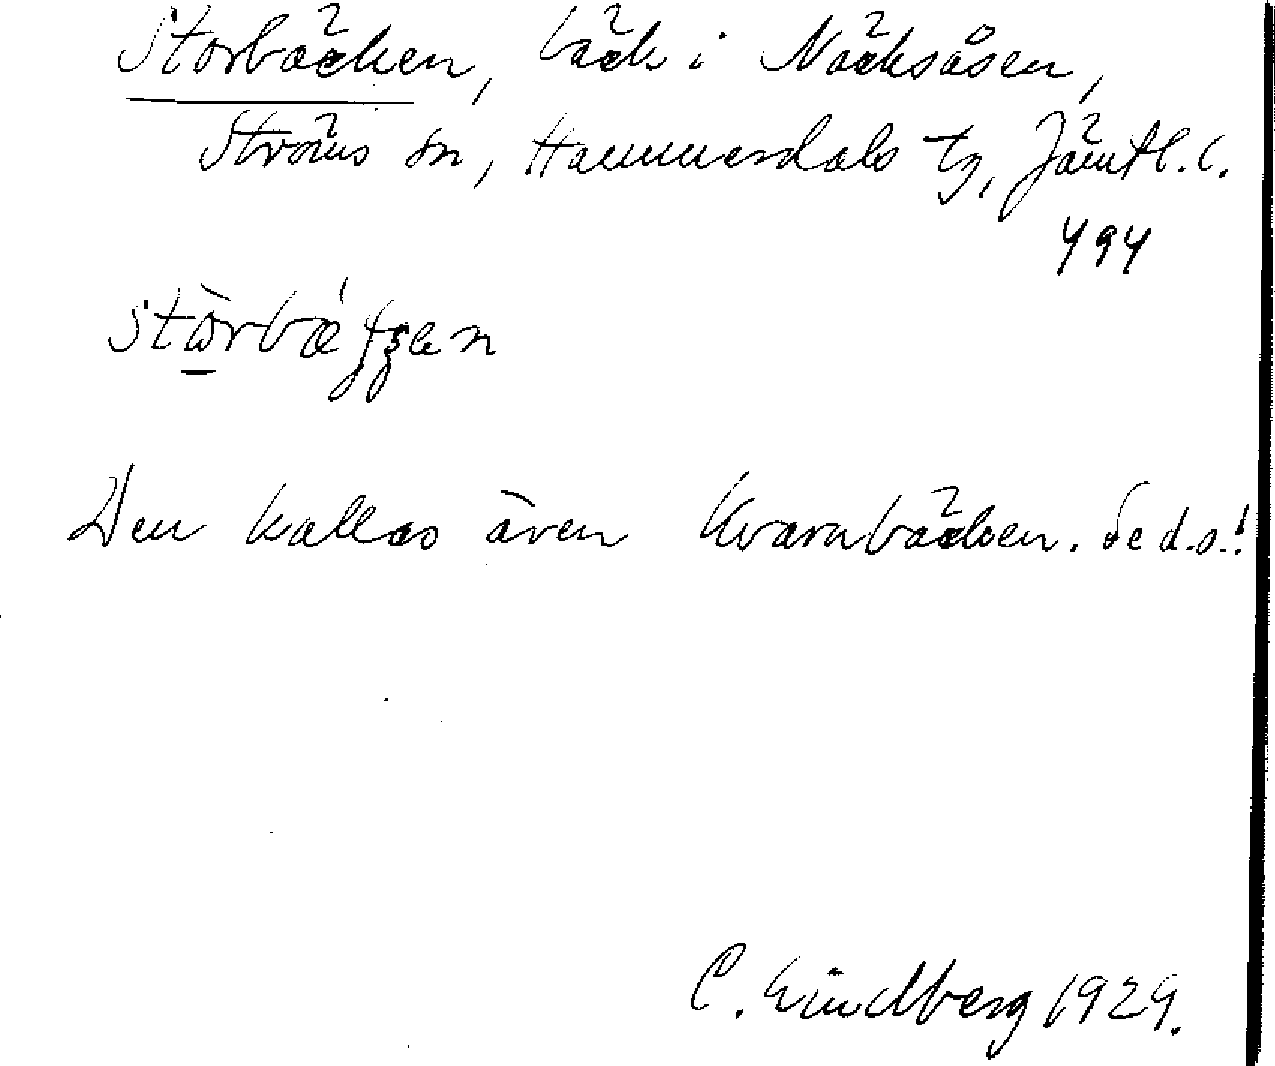 Storbäcken, bäck i Näcksåsen,
Ströms sn, Hammerdals tg, Jämtl. l.
494
Den kallas även Kvarnbäcken. Se d.o.!
C. Lindberg 1929.